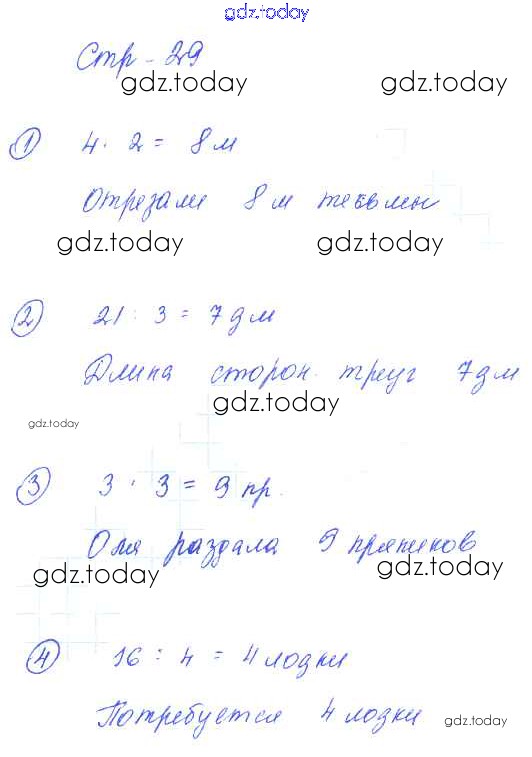 gdz.today
Стр - 29
gdz.today gdz.today
① 4 · 2 = 8 м
Отрезали 8 м тесьмы
gdz.today gdz.today
② 21 : 3 = 7 дм
Длина сторон. треуг 7 дм
gdz.today
gdz.today
③ 3 · 3 = 9 пр.
Оля раздала 9 пряников
gdz.today gdz.today
④ 16 : 4 = 4 лодки
Потребуется 4 лодки gdz.today